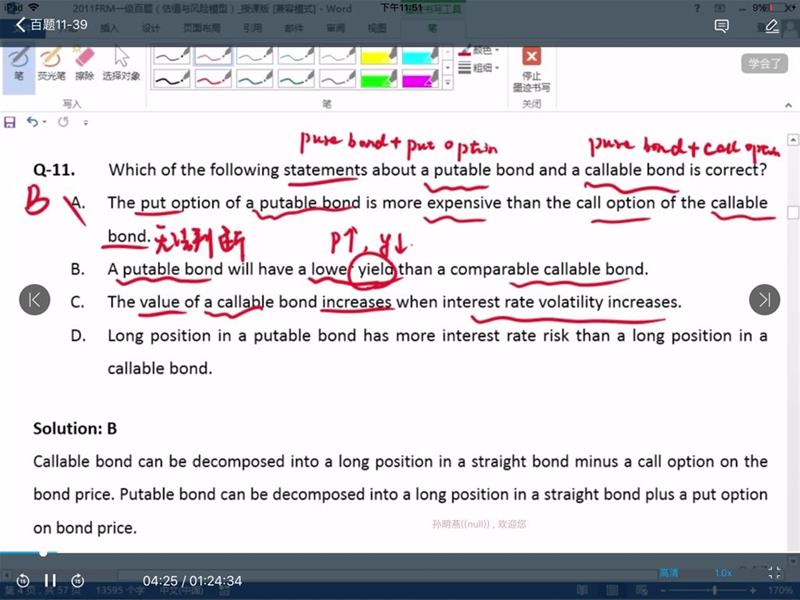 iPad
下午11:51
9%
百题11-39
2011FRM一级百题（估值与风险模型）_授课版 [兼容模式] - Word
设计 页面布局 引用 邮件 审阅 视图
学会了
笔 荧光笔 擦除 选择对象
颜色
粗细
停止
墨迹书写
写入 笔 关闭
pure bond + put option
pure bond + call option
Q-11. Which of the following statements about a putable bond and a callable bond is correct?
B
A. The put option of a putable bond is more expensive than the call option of the callable
bond. 无法判断 P↑, y↓
B. A putable bond will have a lower yield than a comparable callable bond.
C. The value of a callable bond increases when interest rate volatility increases.
D. Long position in a putable bond has more interest rate risk than a long position in a
callable bond.
Solution: B
Callable bond can be decomposed into a long position in a straight bond minus a call option on the
bond price. Putable bond can be decomposed into a long position in a straight bond plus a put option
on bond price.
孙明燕((null)) , 欢迎您
04:25 / 01:24:34
高清 1.0x
第 4 页，共 57 页 13595 个字 中文(中国)
170%